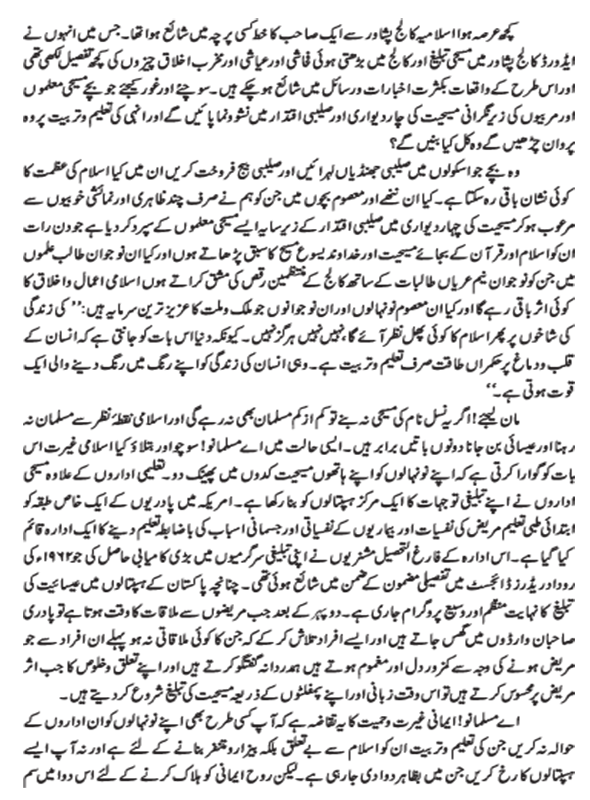 کچھ عرصہ ہوا اسلامیہ کالج پشاور سے ایک صاحب کا خط کسی پرچہ میں شائع ہوا تھا۔ جس میں انہوں نے
ایڈورڈ کالج پشاور میں مسیحی تبلیغ اور کالج میں بڑھتی ہوئی فحاشی اور عیاشی اور مخرب اخلاق چیزوں کی کچھ تفصیل لکھی تھی
اور اس طرح کے واقعات بکثرت اخبارات ورسائل میں شائع ہو چکے ہیں۔ سوچئے اور غور کیجئے جو بچے مسیحی معلموں
اور مربیوں کی زیر نگرانی مسیحیت کی چار دیواری اور صلیبی اقتدار میں نشوونما پائیں گے اور انہی کی تعلیم وتربیت پر وہ
پروان چڑھیں گے وہ کل کیا بنیں گے؟
وہ بچے جو اسکولوں میں صلیبی جھنڈیاں لہرائیں اور صلیبی بیج فروخت کریں ان میں کیا اسلام کی عظمت کا
کوئی نشان باقی رہ سکتا ہے۔ کیا ان ننھے اور معصوم بچوں میں جن کو ہم نے صرف چند ظاہری اور نمائشی خوبیوں سے
مرعوب ہو کر مسیحیت کی چہار دیواری میں صلیبی اقتدار کے زیر سایہ ایسے مسیحی معلموں کے سپرد کر دیا ہے جو دن رات
ان کو اسلام اور قرآن کے بجائے مسیحیت اور خداوند یسوع مسیح کا سبق پڑھاتے ہوں اور کیا ان نوجوان طالب علموں
میں جن کو نوجوان نیم عریاں طالبات کے ساتھ کالج کے منتظمین رقص کی مشق کراتے ہوں اسلامی اعمال واخلاق کا
کوئی اثر باقی رہے گا اور کیا ان معصوم نونہالوں اور ان نوجوانوں جو ملک وملت کا عزیز ترین سرمایہ ہیں: ’’کی زندگی
کی شاخوں پر پھر اسلام کا کوئی پھل نظر آئے گا، نہیں نہیں ہرگز نہیں۔ کیونکہ دنیا اس بات کو جانتی ہے کہ انسان کے
قلب ودماغ پر حکمراں طاقت صرف تعلیم وتربیت ہے۔ وہی انسان کی زندگی کو اپنے رنگ میں رنگ دینے والی ایک
قوت ہوتی ہے۔‘‘
مان لیجئے! اگر یہ نسل نام کی مسیحی نہ بنے تو کم از کم مسلمان بھی نہ رہے گی اور اسلامی نقطۂ نظر سے مسلمان نہ
رہنا اور عیسائی بن جانا دونوں باتیں برابر ہیں۔ ایسی حالت میں اے مسلمانو! سوچو اور بتلاؤ کیا اسلامی غیرت اس
بات کو گوارا کرتی ہے کہ اپنے نونہالوں کو اپنے ہاتھوں مسیحیت کدوں میں پھینک دو۔ تعلیمی اداروں کے علاوہ مسیحی
اداروں نے اپنے تبلیغی توجہات کا ایک مرکز ہسپتالوں کو بنا رکھا ہے۔ امریکہ میں پادریوں کے ایک خاص طبقہ کو
ابتدائی طبی تعلیم مریض کی نفسیات اور بیماریوں کے نفسیاتی اور جسمانی اسباب کی باضابطہ تعلیم دینے کا ایک ادارہ قائم
کیا گیا ہے۔ اس ادارہ کے فارغ التحصیل مشنریوں نے اپنی تبلیغی سرگرمیوں میں بڑی کامیابی حاصل کی جو ۱۹۶۲ء کی
روداد ریڈرز ڈائجسٹ میں تفصیلی مضمون کے ضمن میں شائع ہوئی تھی۔ چنانچہ پاکستان کے ہسپتالوں میں عیسائیت کی
تبلیغ کا نہایت منظم اور وسیع پروگرام جاری ہے۔ دو پہر کے بعد جب مریضوں سے ملاقات کا وقت ہوتا ہے تو پادری
صاحبان وارڈوں میں گھس جاتے ہیں اور ایسے افراد تلاش کر کے کہ جن کا کوئی ملاقاتی نہ ہو پہلے ان افراد سے جو
مریض ہونے کی وجہ سے کمزور دل اور مغموم ہوتے ہیں ہمدردانہ گفتگو کرتے ہیں اور اپنے تعلق وخلوص کا جب اثر
مریض پر محسوس کرتے ہیں تو اس وقت زبانی اور اپنے پمفلٹوں کے ذریعہ مسیحیت کی تبلیغ شروع کر دیتے ہیں۔
اے مسلمانو! ایمانی غیرت وحمیت کا یہ تقاضہ ہے کہ آپ کسی طرح بھی اپنے نونہالوں کو ان اداروں کے
حوالہ نہ کریں جن کی تعلیم وتربیت ان کو اسلام سے بے تعلق بلکہ بیزار ومتنفر بنانے کے لئے ہے اور نہ آپ ایسے
ہسپتالوں کا رخ کریں جن میں بظاہر دوا دی جا رہی ہے۔ لیکن روح ایمانی کو ہلاک کرنے کے لئے اس دوا میں سم